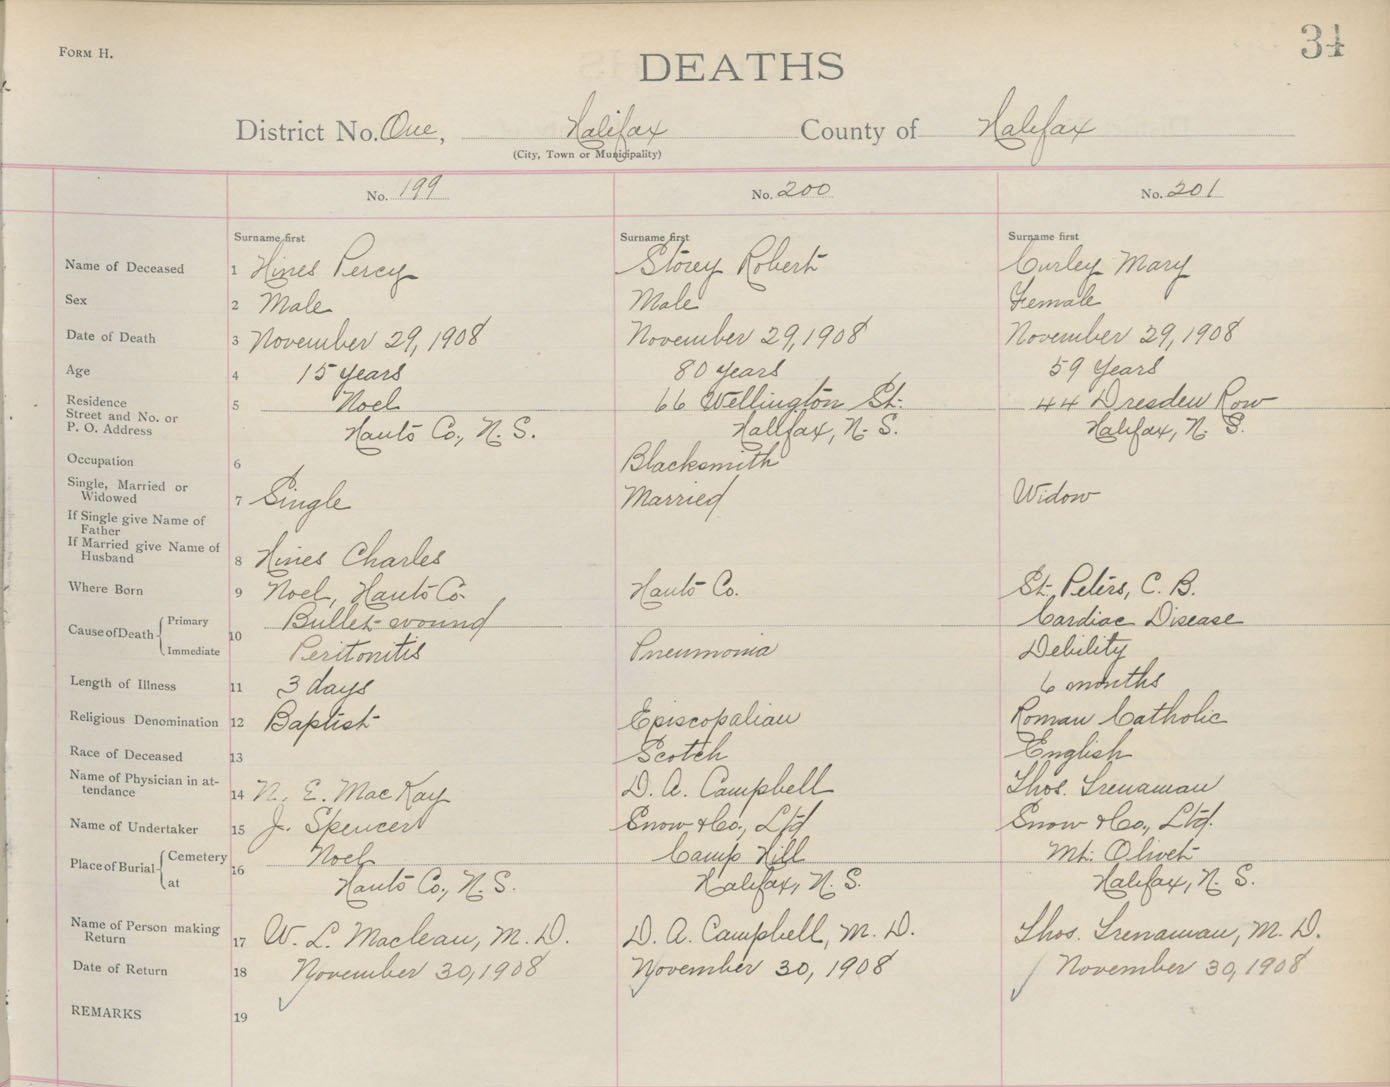 FORM H.
34
DEATHS
District No. One, Halifax County of Halifax
(City, Town or Municipality)
No. 199 No. 200 No. 201
Surname first Surname first Surname first
Name of Deceased 1 Hines Percy Storey Robert Curley Mary
Sex 2 Male Male Female
Date of Death 3 November 29, 1908 November 29, 1908 November 29, 1908
Age 4 15 years 80 years 59 years
Residence 5 Noel 66 Wellington St. 44 Dresden Row
Street and No. or
P. O. Address Hants Co., N. S. Halifax, N. S. Halifax, N. S.
Occupation 6 Blacksmith
Single, Married or
Widowed 7 Single Married Widow
If Single give Name of
Father
If Married give Name of
Husband 8 Hines Charles
Where Born 9 Noel, Hants Co. Hants Co. St. Peters, C. B.
Cause of Death Primary 10 Bullet-wound Cardiac Disease
Immediate Peritonitis Pneumonia Debility
Length of Illness 11 3 days 6 months
Religious Denomination 12 Baptist Episcopalian Roman Catholic
Race of Deceased 13 Scotch English
Name of Physician in at-
tendance 14 N. E. MacKay D. A. Campbell Thos. Trenaman
Name of Undertaker 15 J. Spencer Snow & Co., Ltd Snow & Co., Ltd.
Place of Burial Cemetery 16 Noel Camp Hill Mt. Olivet
at Hants Co., N. S. Halifax, N. S. Halifax, N. S.
Name of Person making
Return 17 W. L. Maclean, M. D. D. A. Campbell, M. D. Thos. Trenaman, M. D.
Date of Return 18 November 30, 1908 November 30, 1908 November 30, 1908
REMARKS 19